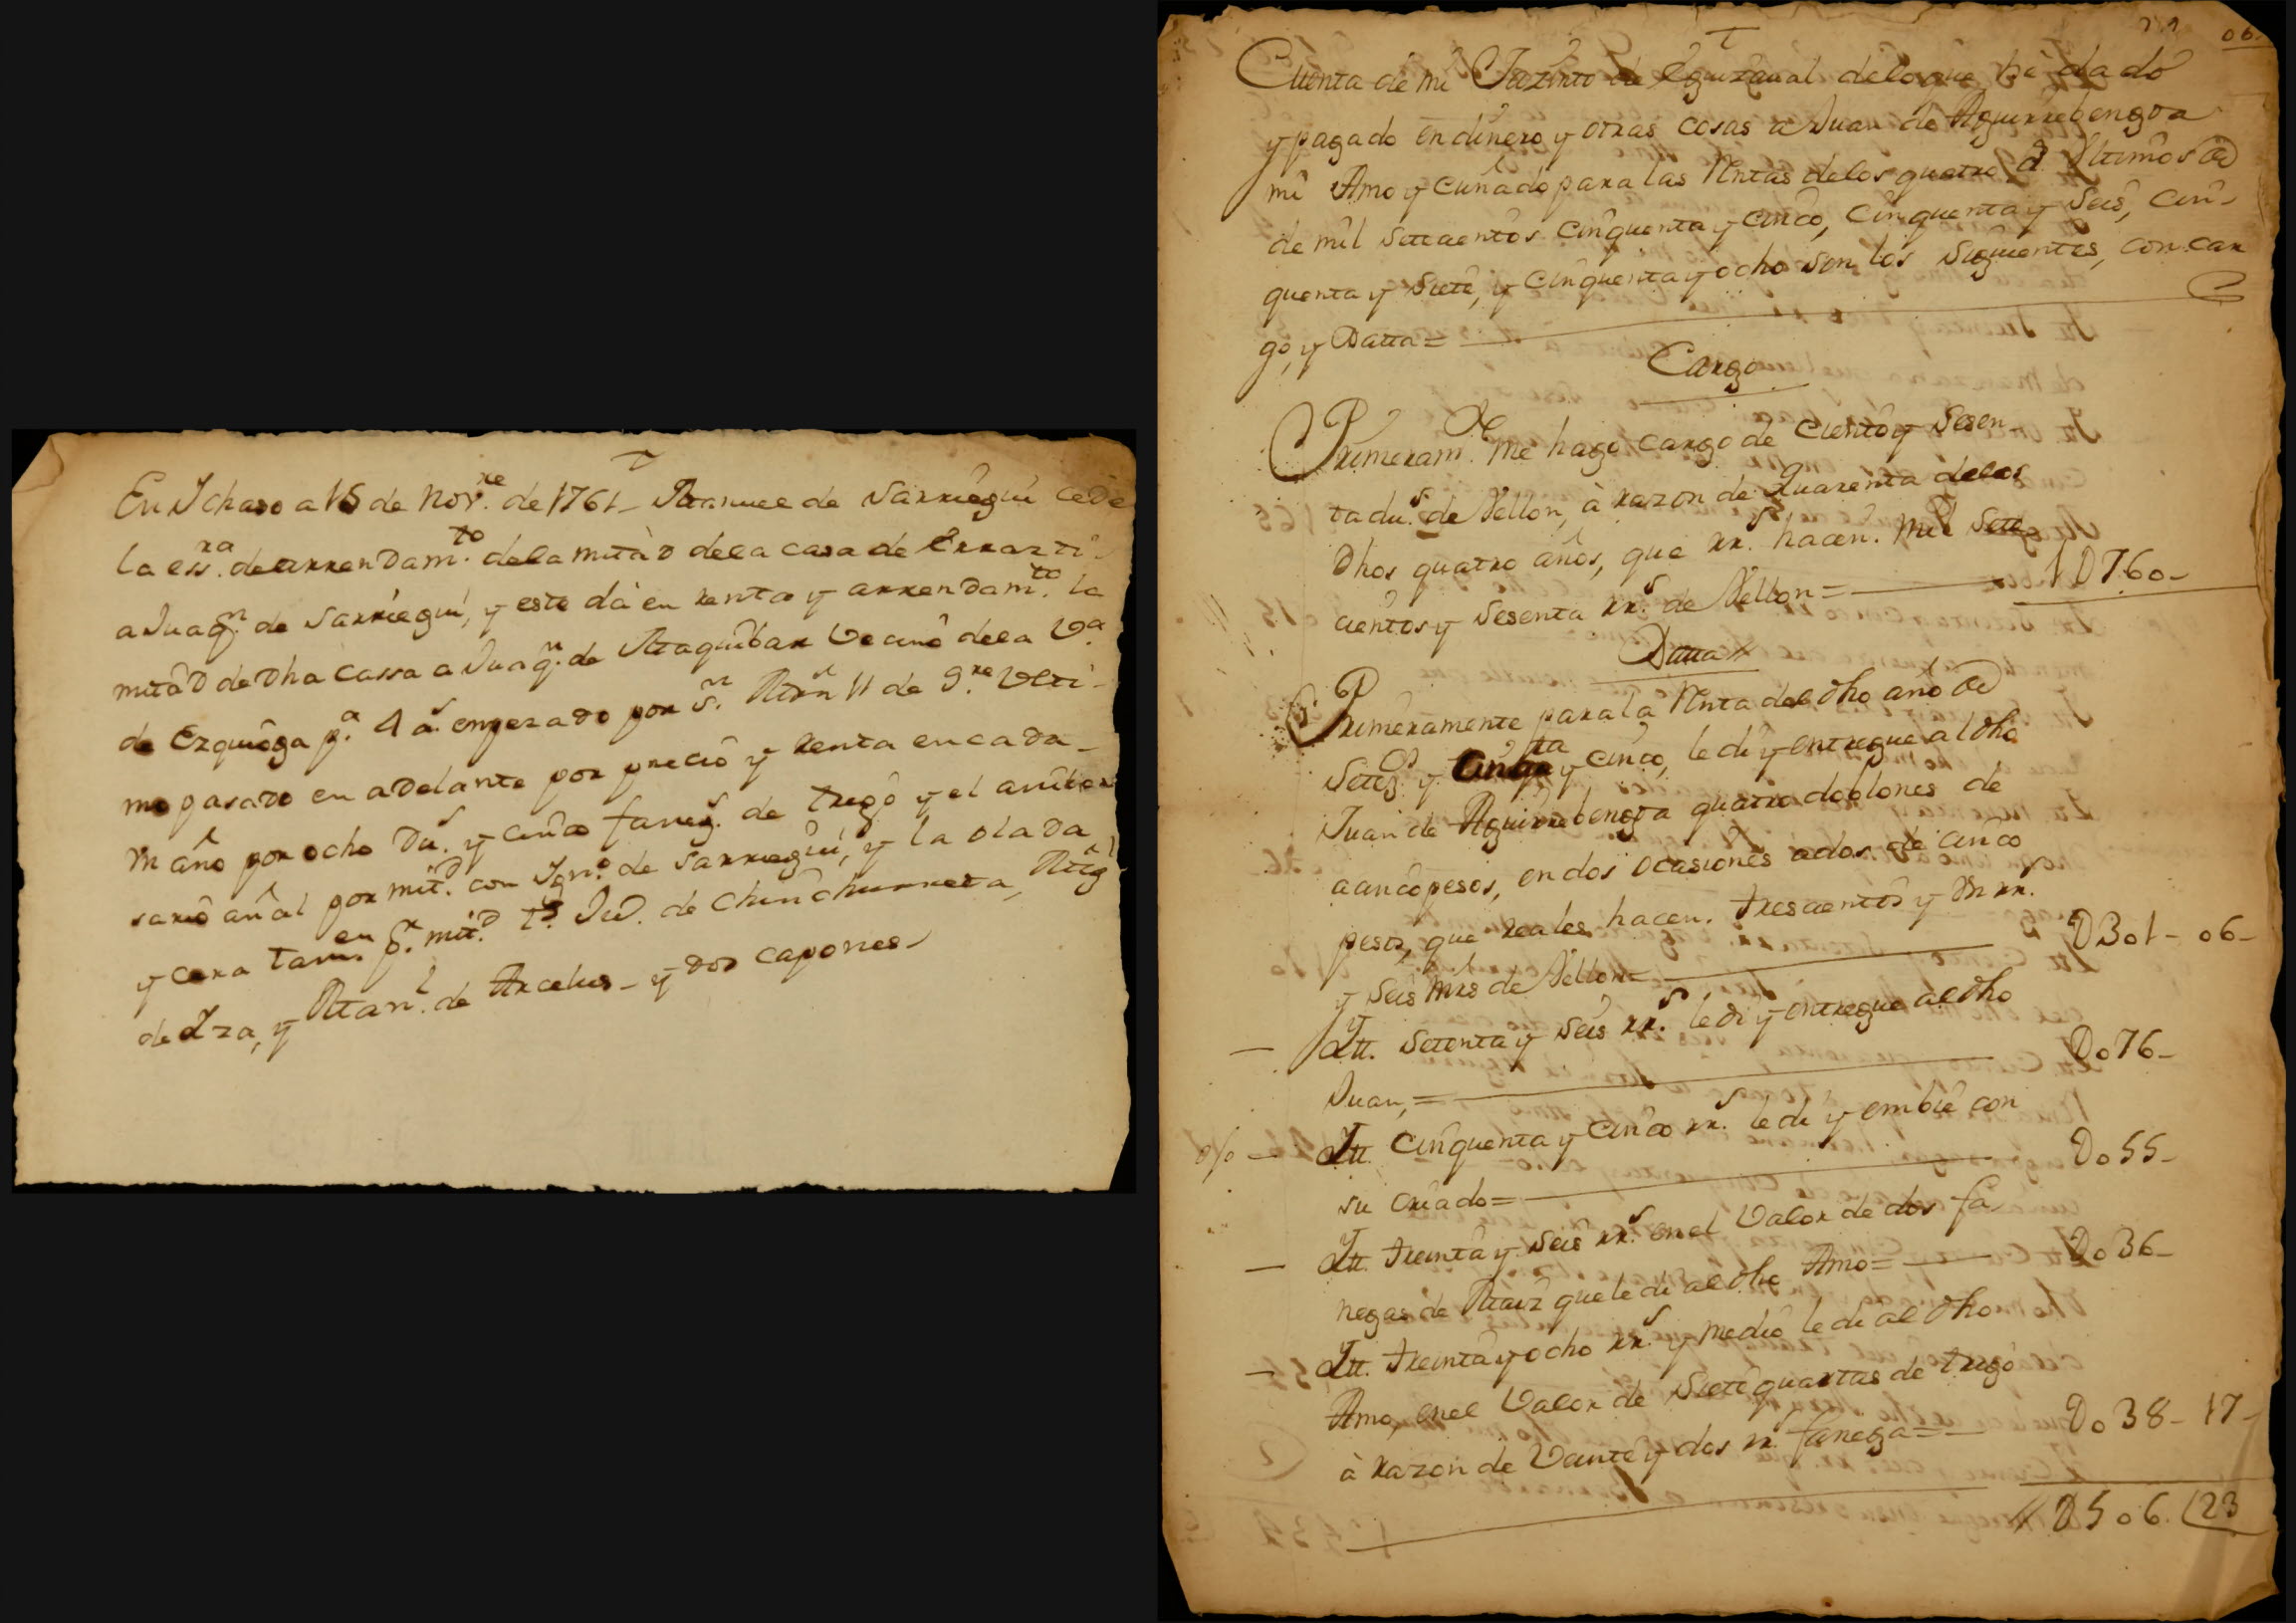 En Ichaso a 15 de Nov.re de 1761_ Manuel de Sarriegui cede
la ess.ra de arrendam.to de la mitad de la casa de Errazti
a Juaq.n de Sarriegui, y este dà en renta y arrendam.to la
mitad de dha cassa a Juaq.n de Maquibar Vecino de la V.a
de Ezquioga p.a 4 a.s empezado por S.n Mrn 11 de 9.re Ulti-
mo pasado en adelante por precio y renta en cada_
un año por ocho Du.s y cinco faneg.s de trigo y el aniber
sario añal por mit.d con Ign.o de Sarriegui, y la olada
y cera tam.en p.r mit.d t.s Ju.o de Chinchurreta, Mig.l
de Iza, y Man.l de Arcelus_ y dos capones_
Cuenta de mi Jazinto de Eguizaual de lo que hè dado
y pagado en dinero y otras cosas a Juan de Aguirrebengoa
mi Amo y cuñado para las Rentas de los quatro a.s Ultimos
de mil Setecientos Cinquenta y Cinco, Cinquenta y Seis, Cin-
quenta y Siete, y Cinquenta y ocho son los Siguientes, con car
go, y Datta=
Cargo
Primeram.te me hago cargo de ciento y Sesen_
ta du.s de Vellon, à razon de quarenta de los
Dhos quatro años, que rr.s hacen. mil Sette
cientos y Sesenta rr.s de Vellon= 1D760_
Datta
Primeramente para la Renta del dho año
Setez.s y Cinq.ta y cinco, le di y entregue al dho
Juan de Aguirrebengoa quatro doblones de
a cinco pesos, en dos ocasiones a dos de cinco
pesos, que reales hacen. trescientos y un rr.
y Seis mrs de Vellon= D301_ 06_
_ Itt. Setenta y Seis rr.s le di y entregue al dho
Juan,= D076_
% _ Itt. Cinquenta y Cinco rr.s le di y embiè con
su criado= D055_
_ Itt. treinta y Seis rr.s en el Valor de dos fa
negas de Maiz que le di al dho Amo= D036_
_ Itt. treinta y ocho rr.s y medio le di al dho
Amo, en el Valor de Siete quartas de trigo
à razon de Veinte y dos rr.s fanega= D038_ 17_
D506. 23